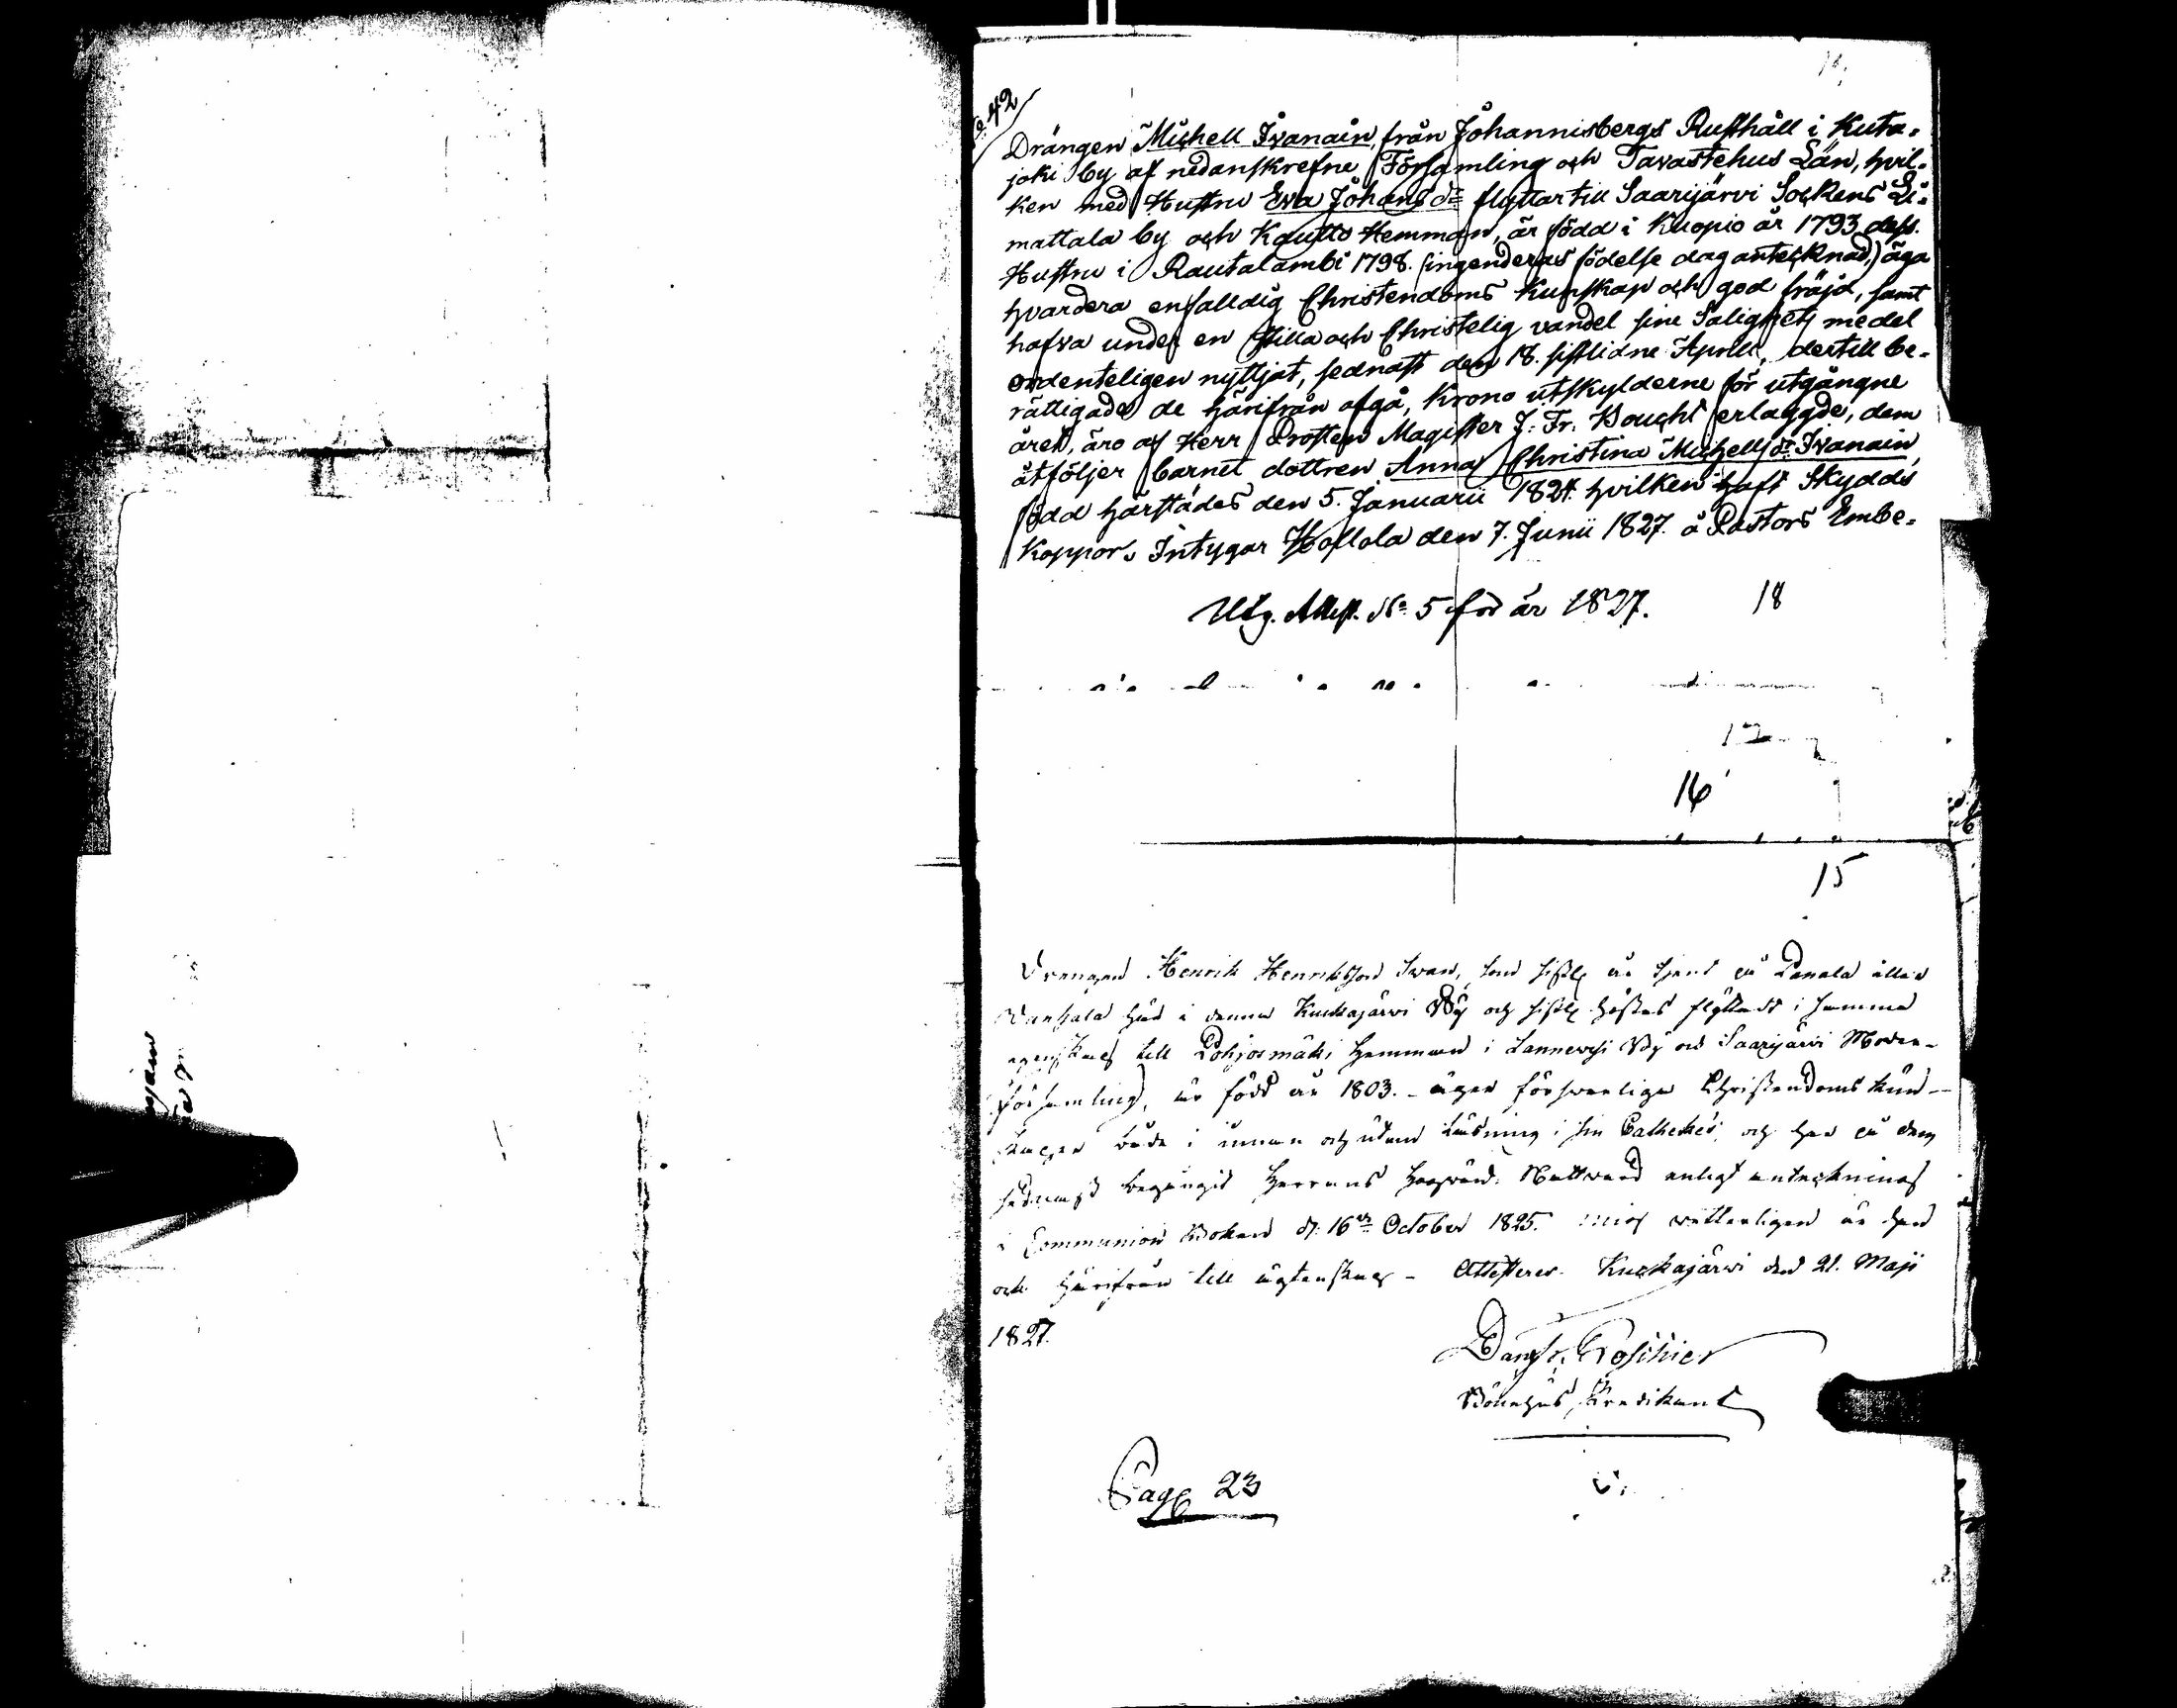 No. 42
Drängen Michell Ivanain, från Johannisbergs Rusthåll i Kuta-
joki by af nedanskrefne Församling och Tavastehus Län, hvil-
ken med Hustru Eva Johans dr flyttar till Saarijärvi Sockens Li-
mattala by och Kautto Hemman, är född i Kuopio år 1793 dess
Hustru i Rautalambi 1798. (ingenderas födelse dag antecknad,) äga
hvardera enfalldig Christendoms Kunskap och god fräjd, samt
hafva under en stilla och Christelig vandel sine Salighets medel
ordenteligen nyttjat, sednast den 18. sistlidne Aprill, dertill be-
rättigade de härifrån afgå, Krono utskylderne för utgångne
året, äro af Herr Prosten Magister J. Fr. Boucht erlaggde, dem
åtföljer barnet dottren Anna Christina Michells dr Ivanain,
född härstädes den 5. Januarii 1824. hvilken haft Skydds
Koppor. Intygar Hollola den 7. Junii 1827. å Pastors Embe-
Utg. Attest. No 5 för år 1827.
18
17
16
15
Drängen Henrik Henriksson Iwan, som sistl. år tjent på
här i denna Kuckajärwi By och sistl. höstas flyttat i samma
egenskap till Pohjosmäki Hemman i Lannewesi By och Saarijärwi Moder-
församling, är född år 1803. - äger förswarliga Christendoms kun-
skaper både i innan och utan läsning i sin Cathekes, och har på dem
sednast begängit Herrans Högwärd. Nattward enligt anteckning
i Communion Boken d. 16de October 1825. wetterligen är han
ock härifrån till ägtenskap - Attesterer. Kuckajärwi den 21. Maji
1827.
Bönehus Predikant
Pag 23